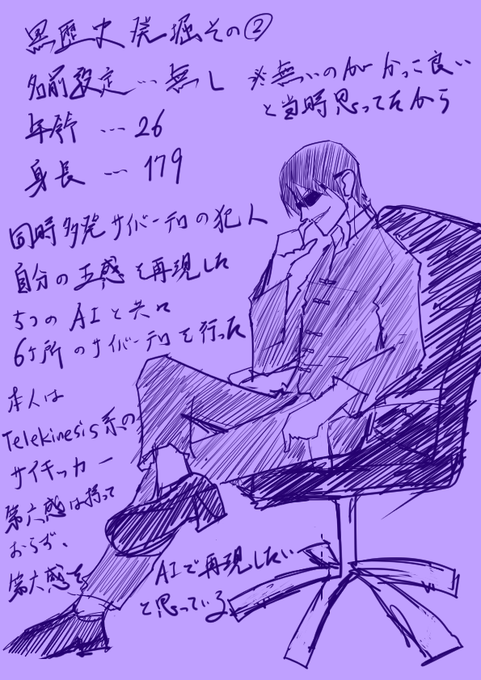 黒歴史発掘その②
名前設定…無し
※無いのがかっこ良い
と当時思ってたから
年齢…26
身長…179
同時多発サイバーテロの犯人
自分の五感を再現した
5つのAIと共に
6ヶ所のサイバーテロを行った
本人は
Telekinesis系の
サイキッカー
第六感は持って
おらず、
第六感を
AIで再現したい
と思っている